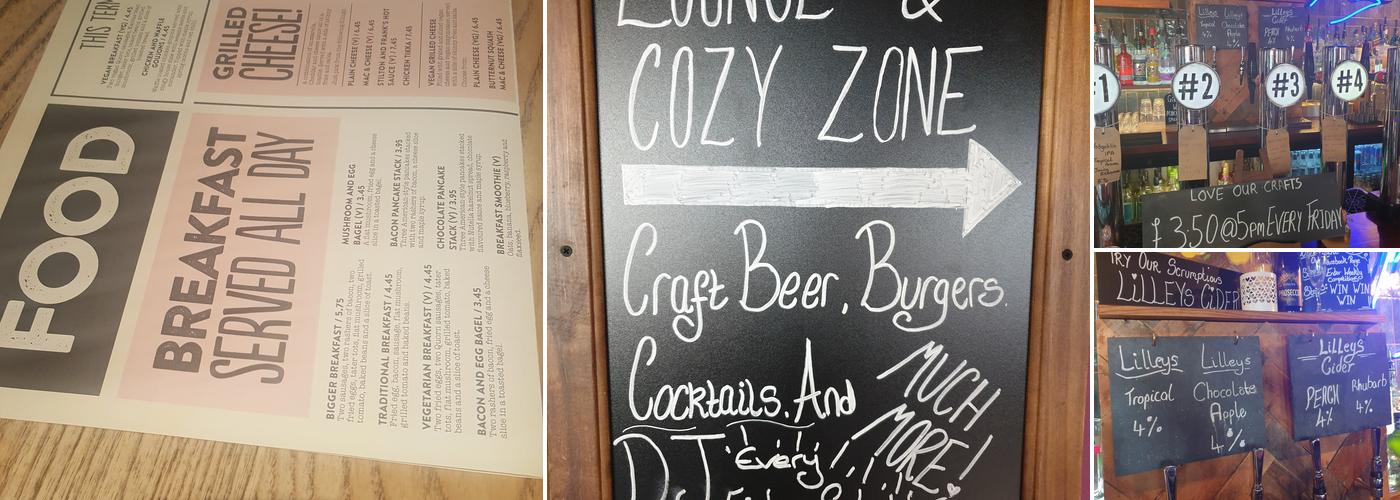 FOOD
BREAKFAST
SERVED ALL DAY
BIGGER BREAKFAST / 5.75
Two sausages, two rashers of bacon, two
fried eggs, tater tots, flat mushroom, grilled
tomato, baked beans and a slice of toast.
TRADITIONAL BREAKFAST / 4.45
Fried egg, bacon, sausage, flat mushroom,
grilled tomato and baked beans.
VEGETARIAN BREAKFAST (V) / 4.45
Two fried eggs, two Quorn sausages, tater
tots, flat mushroom, grilled tomato, baked
beans and a slice of toast.
BACON AND EGG BAGEL / 3.45
Two rashers of bacon, fried egg and a cheese
slice in a toasted bagel.
MUSHROOM AND EGG
BAGEL (V) / 3.45
A flat mushroom, fried egg and a cheese
slice in a toasted bagel.
BACON PANCAKE STACK / 3.95
Three American-style pancakes stacked
with two rashers of bacon, a cheese slice
and maple syrup.
CHOCOLATE PANCAKE
STACK (V) / 3.95
Three American-style pancakes stacked
with Nutella hazelnut spread, chocolate
flavoured sauce and maple syrup.
BREAKFAST SMOOTHIE (V)
Oats, banana, blueberry, raspberry and
flaxseed.
THIS TERM
VEGAN BREAKFAST (VG) / 4.45
CHICKEN AND WAFFLE
GOUJONS / 4.45
GRILLED
CHEESE!
PLAIN CHEESE (V) / 6.45
MAC & CHEESE (V) / 6.45
STILTON AND FRANK'S HOT
SAUCE (V) / 7.45
CHICKEN TIKKA / 7.45
VEGAN GRILLED CHEESE
PLAIN CHEESE (VG) / 6.45
BUTTERNUT SQUASH
MAC & CHEESE (VG) / 6.45
LOUNGE &
COZY ZONE
Craft Beer, Burgers.
Cocktails, And
MUCH
MORE!
DJ 'Every
Lilleys Lilleys
Tropical Chocolate
Apple
Lilleys
Cider
PEACH Rhubarb
#1
#2
#3
#4
LOVE OUR CRAFTS
£3.50@5pm EVERY FRIDAY
TRY Our Scrumptious
LiLLEYS CiDER
PROSECCO
Facebook Page
Enter Weekly
Competitions
WIN WIN
WIN
Lilleys
Tropical
4%
Lilleys
Chocolate
Apple
4%
Lilleys
Cider
PEACH
4%
Rhubarb
4%